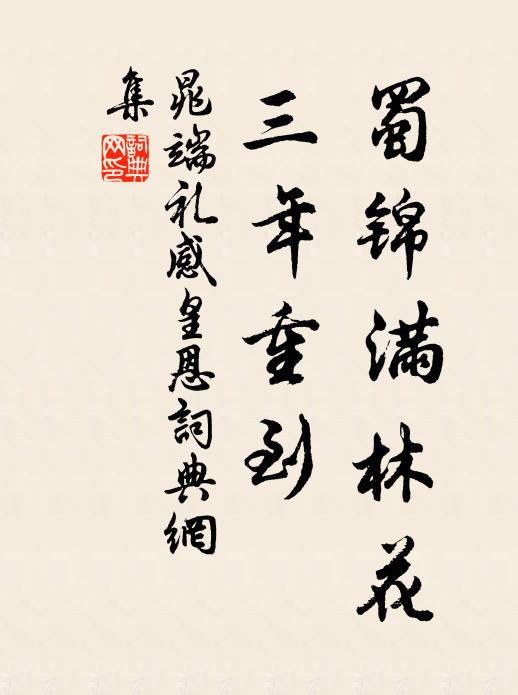 蜀锦满林花
三年重到
晁端礼感皇恩詞典網
集
詞典
网印